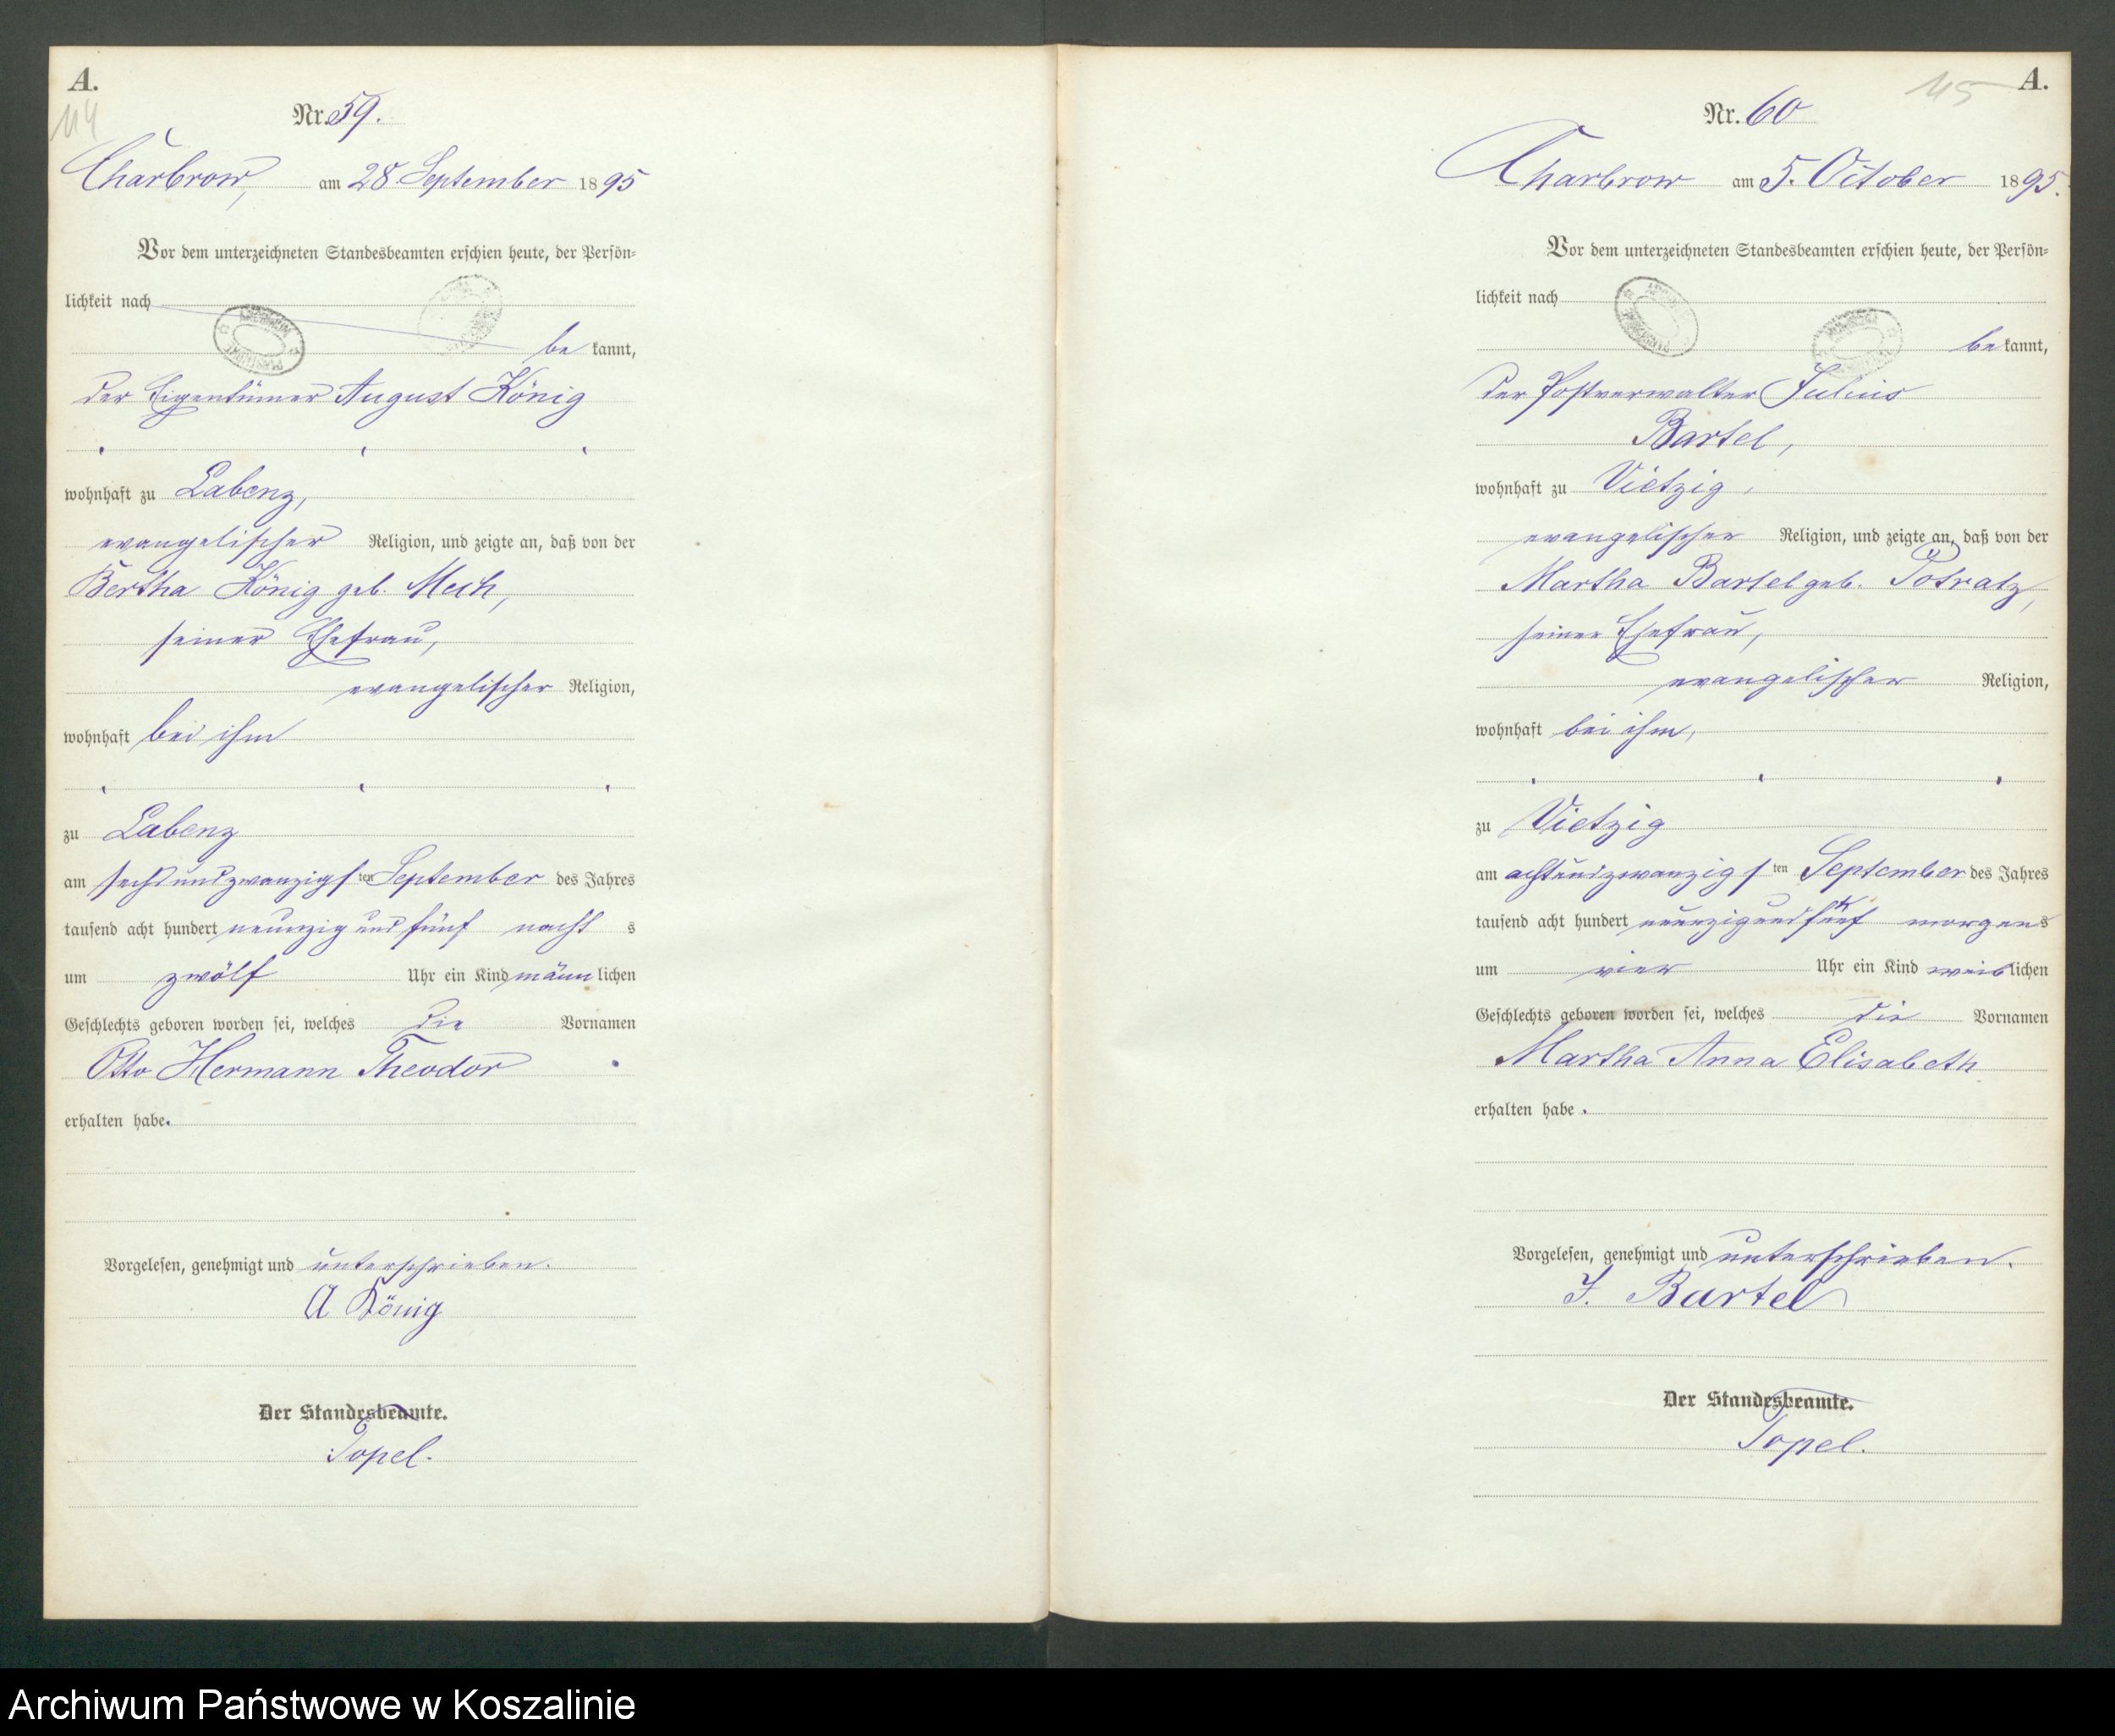 A.
114
Nr. 59.
Charbrow, am 28 September 1895
Vor dem unterzeichneten Standesbeamten erschien heute, der Persön-
lichkeit nach
be kannt,
der Eigentümer August König
wohnhaft zu Labenz,
evangelischer Religion, und zeigte an, daß von der
Bertha König geb. Mech,
seiner Ehefrau,
evangelischer Religion,
wohnhaft bei ihm
zu Labenz
am sechsundzwanzigsten September des Jahres
tausend acht hundert neunzig und fünf nachts
um zwölf Uhr ein Kind männlichen
Geschlechts geboren worden sei, welches die Vornamen
Otto Hermann Theodor
erhalten habe.
Vorgelesen, genehmigt und unterschrieben.
A König
Der Standesbeamte.
Topel.
115
A.
Nr. 60
Charbrow am 5. October 1895.
Vor dem unterzeichneten Standesbeamten erschien heute, der Persön-
lichkeit nach
be kannt,
der Postverwalter Julius
Bartel,
wohnhaft zu Vietzig,
evangelischer Religion, und zeigte an, daß von der
Martha Bartel geb. Potratz,
seiner Ehefrau,
evangelischer Religion,
wohnhaft bei ihm,
zu Vietzig
am achtundzwanzigsten September des Jahres
tausend acht hundert neunzig und fünf morgens
um vier Uhr ein Kind weiblichen
Geschlechts geboren worden sei, welches die Vornamen
Martha Anna Elisabeth
erhalten habe.
Vorgelesen, genehmigt und unterschrieben.
J. Bartel
Der Standesbeamte.
Topel.
Archiwum Państwowe w Koszalinie